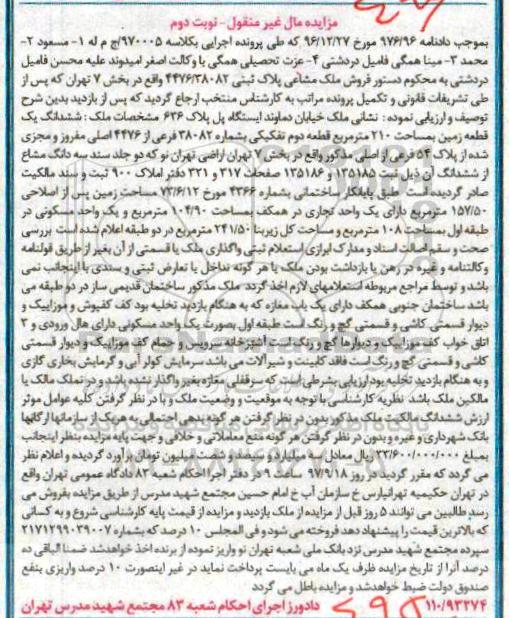 مزایده مال غیر منقول - نوبت دوم
بموجب دادنامه ۹۷۶/۹۶ مورخ ۹۶/۱۲/۲۷ که طی پرونده اجرایی بکلاسه ۹۷۰۰۰۵/ج م له ۱- مسعود ۲-
محمد ۳- مینا همگی فامیل دردشتی ۴- عزت تحصیلی همگی با وکالت اصغر امیدوند علیه محسن فامیل
دردشتی به محکوم دستور فروش ملک مشاعی پلاک ثبتی ۴۴۷۶/۳۸۰۸۲ واقع در بخش ۷ تهران که پس از
طی تشریفات قانونی و تکمیل پرونده مراتب به کارشناس منتخب ارجاع گردید که پس از بازدید بدین شرح
توصیف و ارزیابی نموده : نشانی ملک خیابان دماوند ایستگاه پل پلاک ۶۳۶ مشخصات ملک : ششدانگ یک
قطعه زمین بمساحت ۲۱۰ مترمربع قطعه دوم تفکیکی بشماره ۳۸۰۸۲ فرعی از ۴۴۷۶ اصلی مفروز و مجزی
شده از پلاک ۵۴ فرعی از اصلی مذکور واقع در بخش ۷ تهران اراضی تهران نو که دو جلد سند سه دانگ مشاع
از ششدانگ آن ذیل ثبت ۱۳۵۱۸۵ و ۱۳۵۱۸۶ صفحات ۳۱۷ و ۳۲۱ دفتر املاک ۹۰۰ ثبت و سند مالکیت
صادر گردیده است طبق پایانکار ساختمانی بشماره ۴۳۶۶ مورخ ۷۳/۶/۱۲ مساحت زمین پس از اصلاحی
۱۵۷/۵۰ مترمربع دارای یک واحد تجاری در همکف بمساحت ۱۰۴/۹۰ مترمربع و یک واحد مسکونی در
طبقه اول بمساحت ۱۰۸ مترمربع و مساحت کل زیربنا ۲۴۱/۵۰ مترمربع در دو طبقه اعلام شده است بررسی
صحت و سقم اصالت اسناد و مدارک ابرازی استعلام ثبتی واگذاری ملک یا قسمتی از آن بغیر از طریق قولنامه
و کالتنامه و غیره در رهن یا بازداشت بودن ملک یا هر گونه تداخل یا تعارض ثبتی و سندی با اینجانب نمی
باشد و توسط مراجع مربوطه استعلامهای لازم اخذ گردد ملک مذکور ساختمان قدیمی ساز در دو طبقه می
باشد ساختمان جنوبی همکف دارای یک باب مغازه که به هنگام بازدید تخلیه بود کف کفپوش و موزاییک و
دیوار قسمتی کاشی و قسمتی گچ و رنگ است طبقه اول بصورت یک واحد مسکونی دارای هال ورودی و ۳
اتاق خواب کف موزاییک و دیوارها گچ و رنگ است آشپزخانه سرویس و حمام کف موزاییک و دیوار قسمتی
کاشی و قسمتی گچ و رنگ است فاقد کابینت و شیرآلات می باشد سرمایش کولر آبی و گرمایش بخاری گازی
و به هنگام بازدید تخلیه بود ارزیابی بشرطی است که سرقفلی مغازه بغیر واگذار نشده باشد و در تملک مالک یا
مالکین ملک باشد نظریه کارشناسی با توجه به موقعیت و وضعیت ملک و با در نظر گرفتن کلیه عوامل موثر
ارزش ششدانگ مالکیت ملک مذکور بدون در نظر گرفتن هر گونه بدهی احتمالی به هر یک از سازمانها ارگانها
بانک شهرداری و غیره و بدون در نظر گرفتن هر گونه منع معاملاتی و خلافی و جهت پایه مزایده بنظر اینجانب
بمبلغ ۳۳/۶۰۰/۰۰۰/۰۰۰ ریال معادل سه میلیارد و سیصد و شصت میلیون تومان برآورد گردیده و اعلام نظر
می گردد که مقرر گردید در روز ۹۷/۹/۱۸ ساعت ۹ در دفتر اجرا احکام شعبه ۸۳ دادگاه عمومی تهران واقع
در تهران حکیمیه تهرانپارس خ سازمان آب خ امام حسین مجتمع شهید مدرس از طریق مزایده بفروش می
رسد طالبین می توانند ۵ روز قبل از مزایده از ملک بازدید و مزایده از قیمت پایه کارشناسی شروع و به کسانی
که بالاترین قیمت را پیشنهاد دهد فروخته می شود و فی المجلس ۱۰ درصد که بشماره ۲۱۷۱۲۹۹۰۳۹۰۰۷
سپرده مجتمع شهید مدرس نزد بانک ملی شعبه تهران نو واریز نموده از برنده اخذ خواهدشد ضمنا الباقی ده
درصد آنرا از تاریخ مزایده ظرف یک ماه می بایست پرداخت نماید در غیر اینصورت ۱۰ درصد واریزی بنفع
صندوق دولت ضبط خواهدشد و مزایده باطل می گردد
۱۱۰/۹۳۲۷۴ دادورز اجرای احکام شعبه ۸۳ مجتمع شهید مدرس تهران